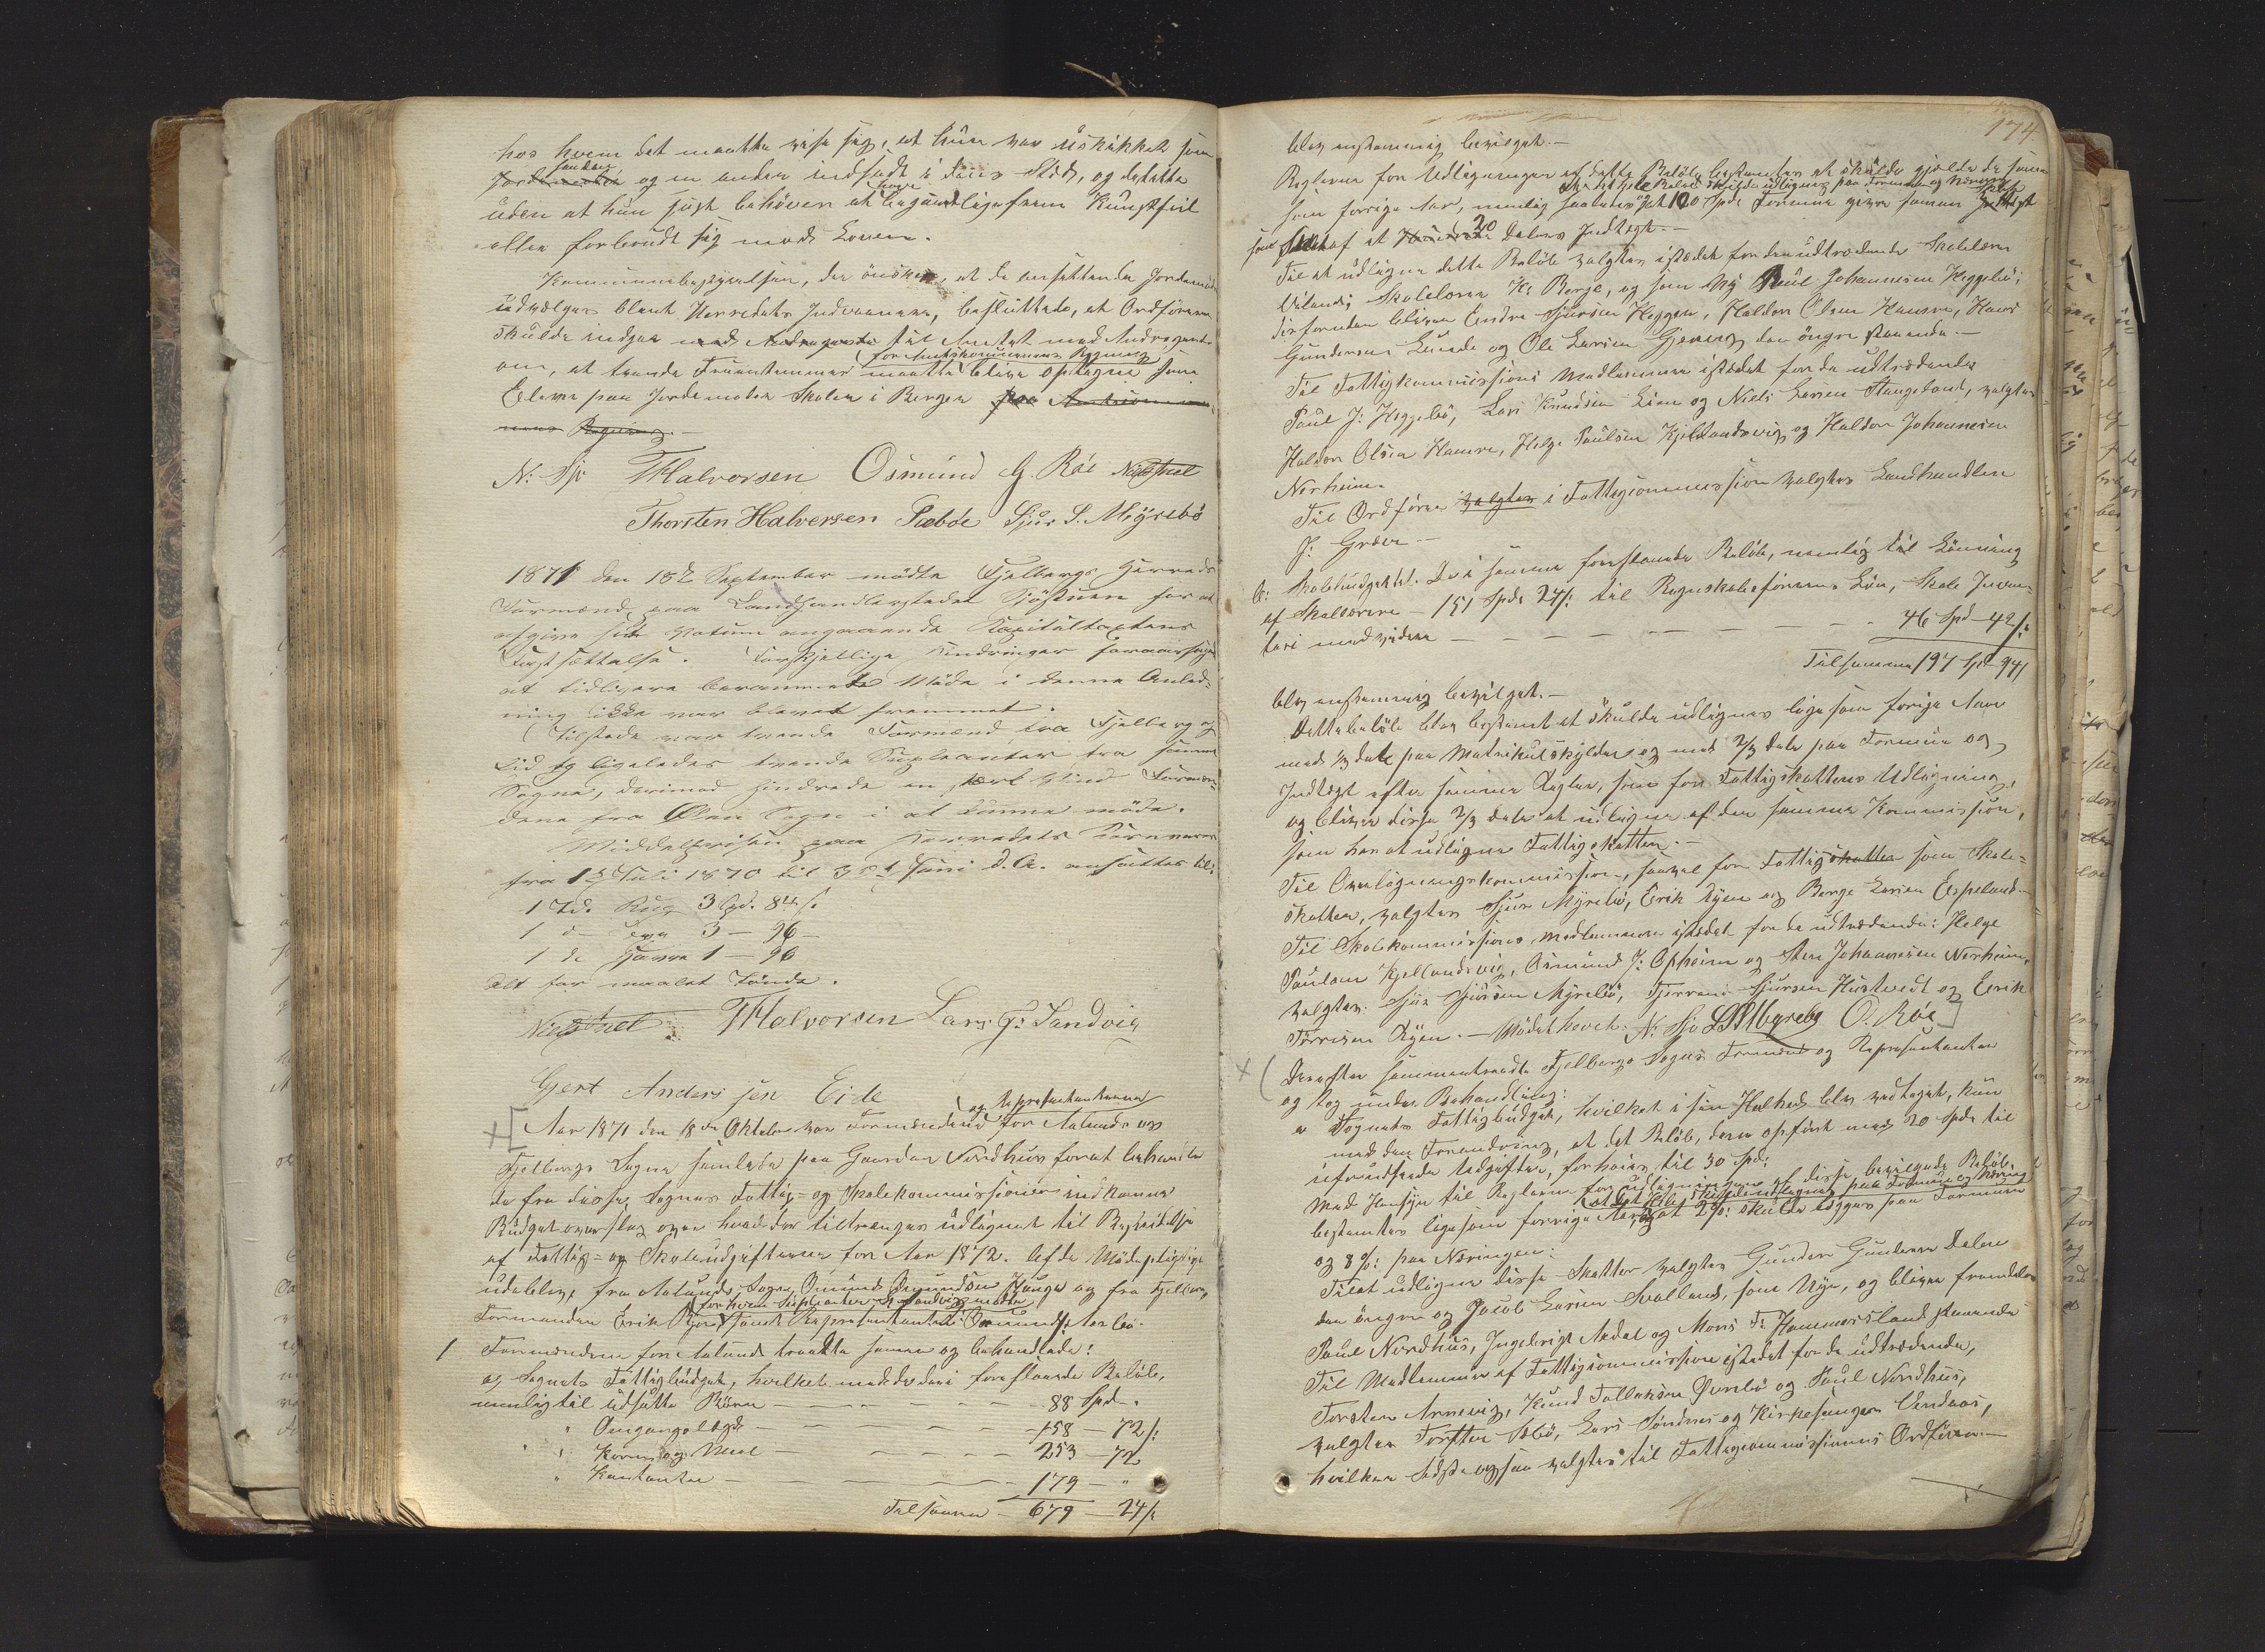 hos hvem det maatte vise sig, at hun var uskikket som
saadan og en anden indsadt i dens Sted, og dettte
uden at hun just behöver at have begaaet ligefrem Kunstfeil
eller forbrudt sig mod Loven.
Kommunebestyrelsen, der önsker, at de ansettende Jordemödre
udvælges blandt Herredets Indvaanere, besluttede, at Ordföreren
skulde indgaa med Andragende til Amtet med Andragende
om, at tvende Fruentimmer maatte for Amtskommunens Regning blive optagne som
Elever paa Jordemoder Skolen i Bergen paa Amtskommu-
nens Regning.-
N: Sjo THalvorsen Osmund G. Röe Niels Juel
Thorsten Halversen Sæböe Sjur S. Myrebö
1871 den 18de September mödte Fjelbergs Herreds
Formænd paa Landhandlerstedet Sjöstuen for at
afgive sit Votum angaaende Kapitultaxtens
Fastsættelse. Forskjellige Hindringer foraarsaged
at tidligere berammede Möde i denne Anled-
ning ikke var blevet fremmet.
Tilstede var tvende Formænd fra Fjelberg og
Eid og ligeledes tvende Supleanter fra samme
Sogne, derimod hindrede en stærk Vind Formæn-
dene fra Ölen Sogn i at kunne möde.
Middelprisen paa Herredets Kornvarer
fra 1ste Juli 1870 til 30te Juni d.A. ansattes til:
1 Td. Rug 3 Spd. 84 s.
1 do 3 - 96 -
1 do Havre 1 - 96
Alt for maalet Tönde.
Niels Juel THalvorsen Lars G: Sandvig
Gjert Andersen Eide
Aar 1871 den 18de Oktober var Formændene og Repræsentanterne for Aalunds og
Fjelbergs Sogne samlede paa Gaarden Nordhus for at behandle
de fra disse Sognes Fattig- og Skolekommissioner indkomne
Budgetoverslag over hvad der tiltrænges udlignet til Bestridelse
af Fattig- og Skoleudgifterne for Aar 1872. Af de Mödepligtige
udeblev, fra Aalunds Sogn, Osmund Osmundsen Hauge og fra Fjelberg,
Formanden Erik for hvem Supleanten Sandvig mödte samt Repræsentanten Osmund
1 Formændene for Aalund traadte sammen og behandlede:
a, Sognets Fattigbudget, hvilket med de deri foreslaaede Beløb,
nemlig til udsatte Börn - 88 Spd -"
" Omgangslægd - 158 - 72 s:
" Korn og Meel - 253 - 72
" Kontanter - 179 - "
Tilsammen - 679 - 24 s:
174
blev enstemmig bevilget.-
Reglerne for Udligningen af dette Beløb bestemtes at skulde gjælde de samme
som forrige Aar, nemlig saaledes at 120 Spd: Formue giver samme
Skat af et Hundrede 20 Dalers Indtægt.-
Til at udligne dette Beløb valgtes istedet for den udtrædende Skolelærer
Vilands Skolelærer K: Berge, og som Ny Poul Johannesen Heggebö;
desforuden bliver Endre Sjursen Heggen, Haldor Olsen Hamre, Hans
Gundersen Lunde og Ole Larsen Gjering den yngre staaende.-
Til Fattigkommissions Medlemmer istedet for de udtrædende
Poul J: Heggebö, Lars Knudsen Lien og Niels Larsen Stangeland, valgtes
Haldor Olsen Hamre, Helge Poulsen Kjellandsvig og Haldor Johannesen
Nerheim.
Til Ordförer valgtes i Fattigcommission valgtes Landhandler
J: Græve.-
b: Skolebudgettet. De i samme foreslaaede Beløb, nemlig til Lönning
af Skolelærere - 151 Spd: 24 s: til Regnskabsförerens Lön, Skole Inven-
tari med videre - 46 Spd - 42 s:
Tilsammen 197 Spd 94 s
blev enstemmig bevilget.-
Dette beløb blev bestemt at skulde udlignes ligesom forrige Aar
med 1/3 Del paa Matrikulskylden og med 2/3 dele paa Formue og
Indtægt efter samme Regler, som for Fattigskattens Udligning,
og bliver disse 2/3 dele at udligne af den samme Kommission,
som har at udligne Fattigskatten.-
Til Overligningskommission, saavel for Fattigskatten som Skole-
skatten, valgtes Sjur Myrebö, Erik Ryen og Berge Larsen Espeland.-
Til Skolekommissions medlemmer istedet for de udtrædende: Helge
Poulsen Kjellandsvig, Osmund J: Opheim og Sten Johannesen Nerheim,
valgtes Sjur Sjursen Myrebö, Sjursen Hustvedt og Erik
Törrisen Ryen.- Mödet hævet. N: Sjo S.S Myrebø O. Röe
Derefter sammentraadte Fjelbergs Sogns Formænd og Repræsentanter
og tog under Behandling:
a Sognets Fattigbudget, hvilket i sin Helhed blev vedtaget, kun
med den Forandring, at det Beløb, som opført med 20 Spd: til
uforudseede Udgifter, forhøies til 30 Spd:
Med Hensyn til Reglerne for Udligningen af disse bevilgede Beløb
bestemtes ligesom forrige Aar, at 2%: skulde lægges paa Formuen
og 8%: paa Næringen:
Til at udligne disse Skatter valgtes Gunder Gundersen Dalen
den yngre og Jacob Larsen Svolland, som Nye, og bliver fremdeles
Poul Nordhus, Ingebrigt Aadal og Mons T: Hammersland staaende
Til Medlemmer af Fattigcommission istedet for de udtrædende,
Torsten Arnevig, Knud Tollaksen Ovrebö og Poul Nordhus,
valgtes Torsten Sebö, Lars Söndnes og Kirkesanger Vindaas,
hvilken Sidste ogsaa valgtes til Fattigcommissionens Ordförer.-